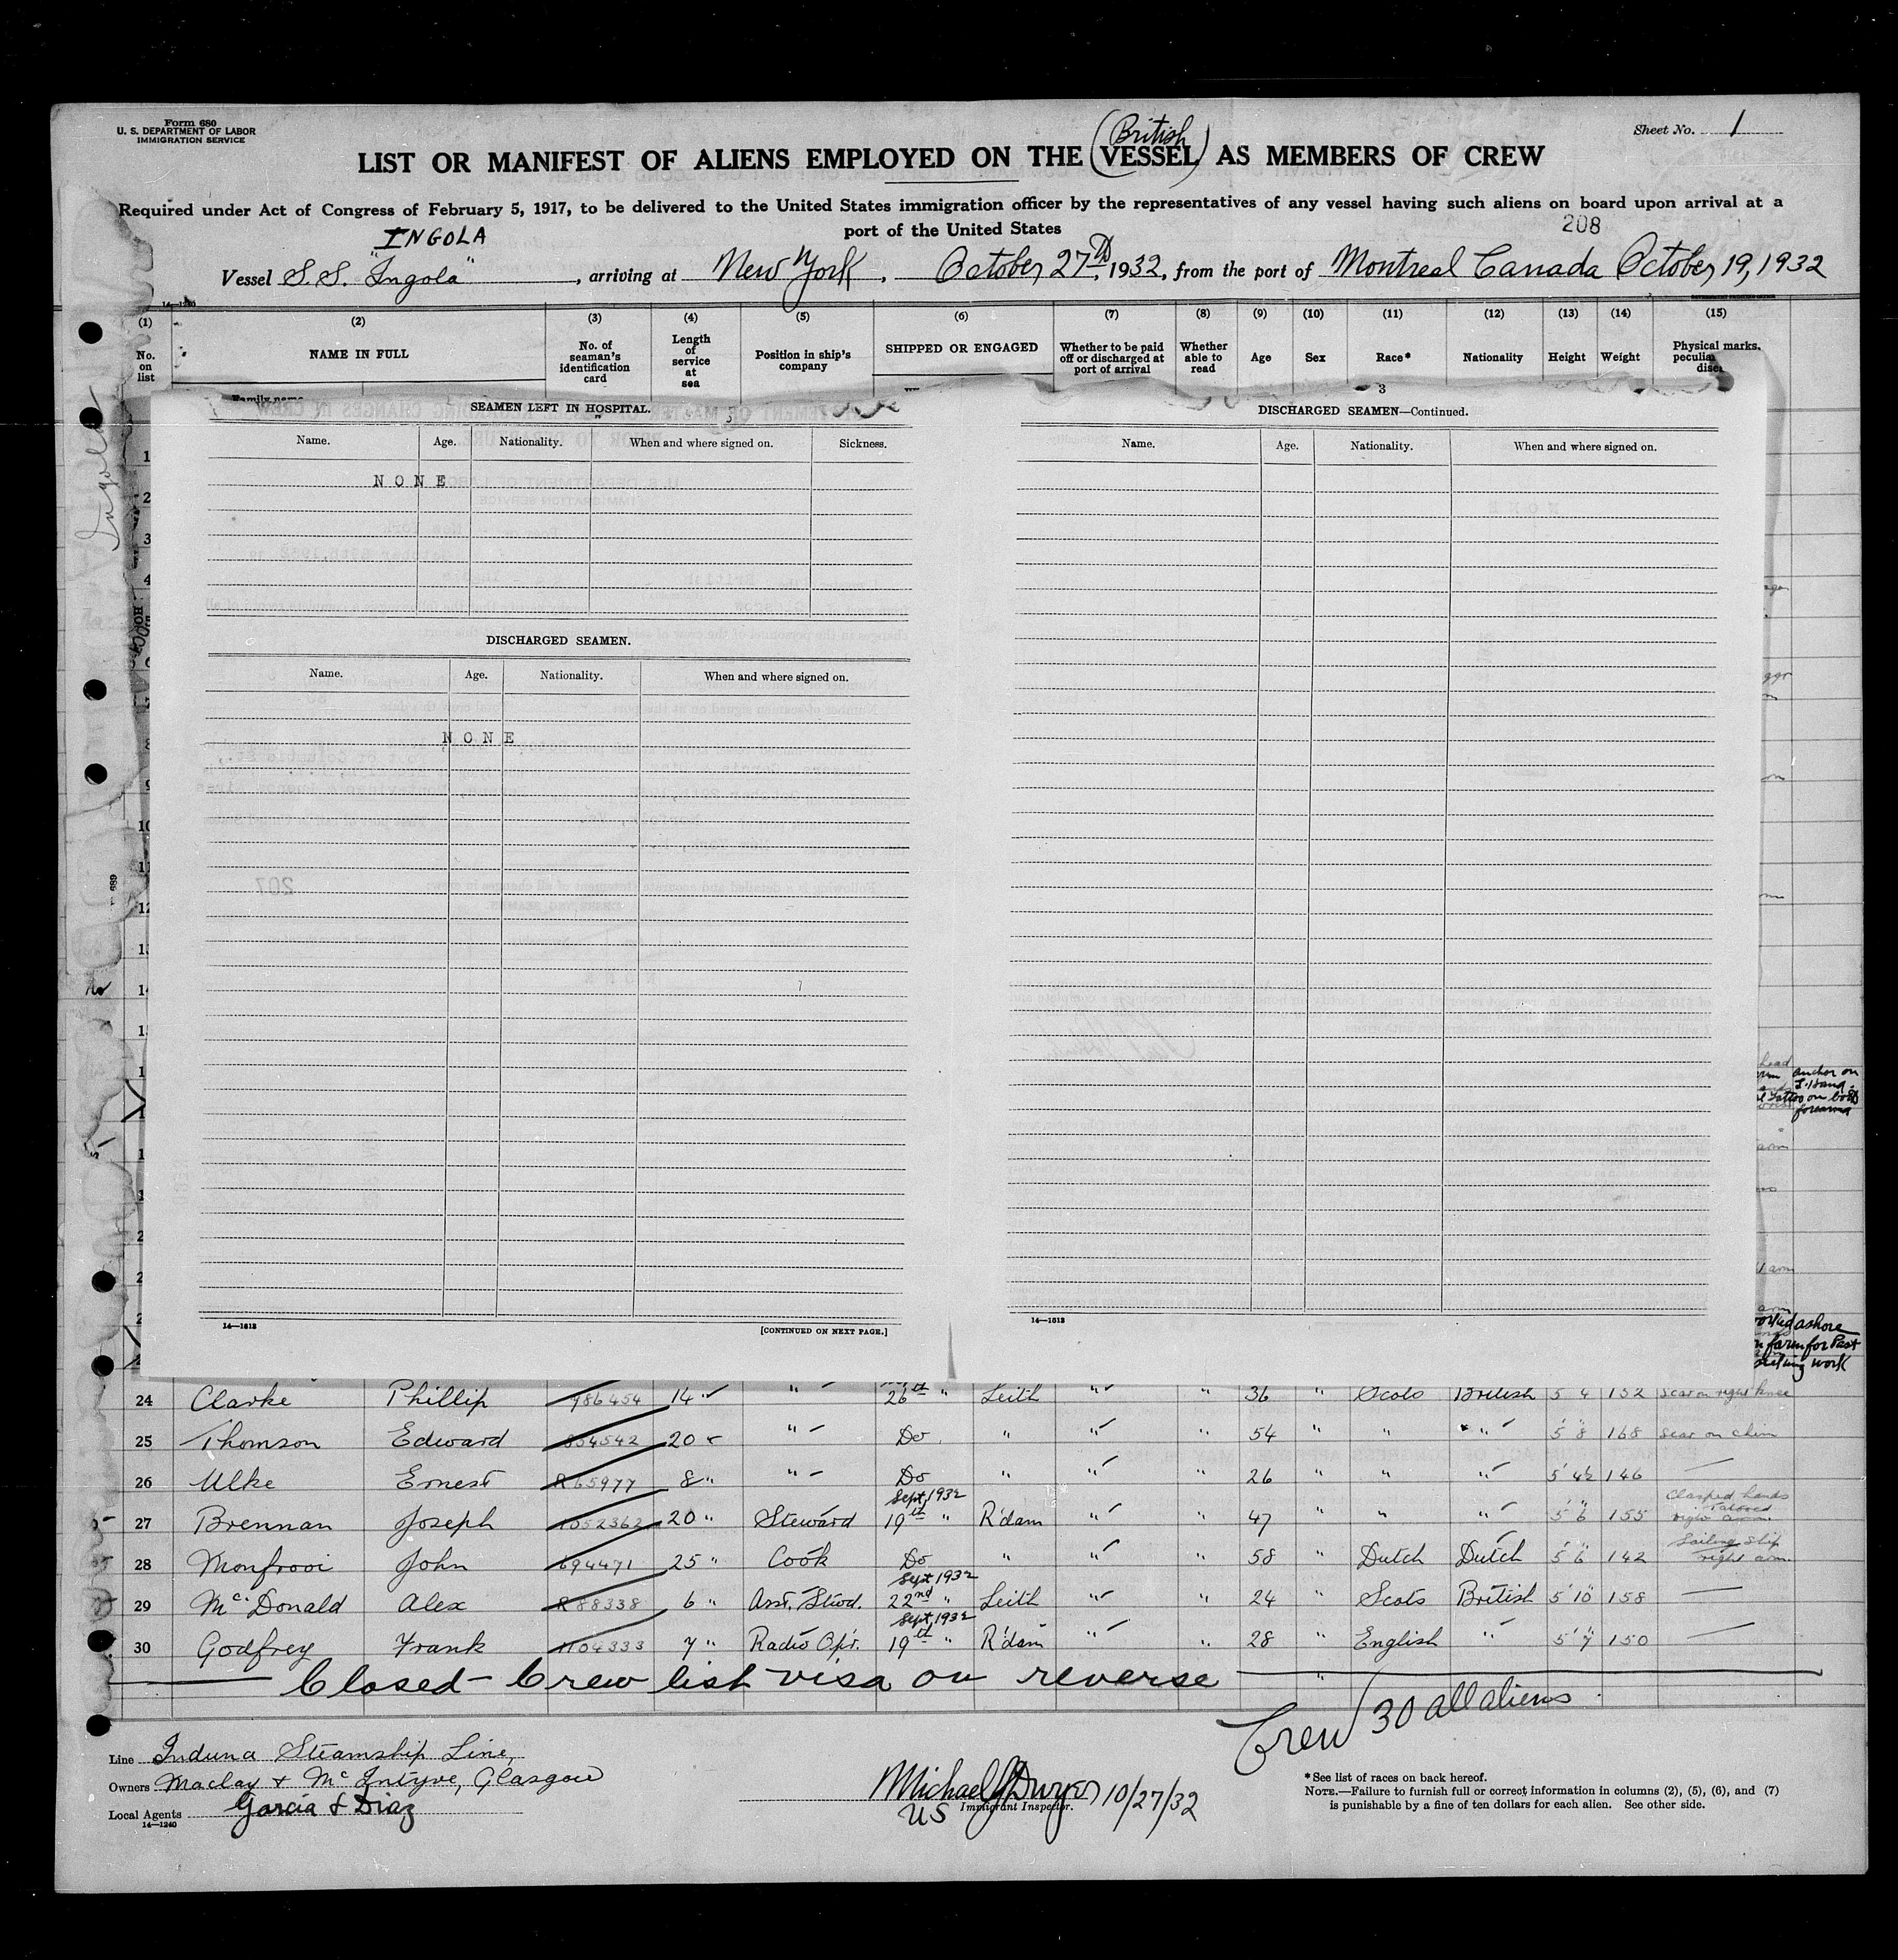 Form 680
U. S. DEPARTMENT OF LABOR
IMMIGRATION SERVICE
Sheet No. 1
(British)
LIST OR MANIFEST OF ALIENS EMPLOYED ON THE VESSEL AS MEMBERS OF CREW
Required under Act of Congress of February 5, 1917, to be delivered to the United States immigration officer by the representatives of any vessel having such aliens on board upon arrival at a
port of the United States
208
INGOLA
Vessel S.S. "Ingola", arriving at New York, October 27th, 1932, from the port of Montreal Canada October 19, 1932
14—1240
(1) (2) (3) (4) (5) (6) (7) (8) (9) (10) (11) (12) (13) (14) (15)
No. on list
NAME IN FULL
No. of seaman's identification card
Length of service at sea
Position in ship's company
SHIPPED OR ENGAGED
Whether to be paid off or discharged at port of arrival
Whether able to read
Age
Sex
Race*
Nationality
Height
Weight
Physical marks,
Family name
Ingola
SEAMEN LEFT IN HOSPITAL.
Name. Age. Nationality. When and where signed on. Sickness.
NONE
DISCHARGED SEAMEN.
Name. Age. Nationality. When and where signed on.
NONE
14—1613
[CONTINUED ON NEXT PAGE.]
3
DISCHARGED SEAMEN—Continued.
Name. Age. Nationality. When and where signed on.
14—1613
anchor on
L. Hand
Tattoo on both
forearms
ashore
farm for Past
seeking work
24 Clarke Phillip 986454 14 " " 26th " Leith " " 36 " Scots British 5 4 132 scar on right knee
25 Thomson Edward 854542 20 " Do " " " 54 " " " 5' 8" 168 scar on chin
26 Ulke Ernest R65977 8 " " Do " " " 26 " " " 5' 4½ 146 —
Sept, 1932
27 Brennan Joseph 1052362 20 " Steward 19th " R'dam " " 47 " " " 5' 6" 155 Clasped hands tatooed right arm.
28 Monfrooi John 694471 25 " Cook Do " " " 58 " Dutch Dutch 5' 6" 142 Sailing ship right arm.
Sept 1932
29 McDonald Alex R88338 6 " Asst. Stwd. 22nd " Leith " " 24 " Scots British 5' 10" 158 —
Sept, 1932
30 Godfrey Frank 1104333 7 " Radio Opr. 19th " R'dam " " 28 " English " 5' 7" 150 —
Closed - Crew list visa on reverse "
Crew 30 all aliens
Line Induna Steamship Line,
Owners Maclay & McIntyre, Glasgow
Local Agents Garcia & Diaz
14—1240
Michael J Dwyer 10/27/32
US Immigrant Inspector.
*See list of races on back hereof.
NOTE.—Failure to furnish full or correct information in columns (2), (5), (6), and (7)
is punishable by a fine of ten dollars for each alien. See other side.